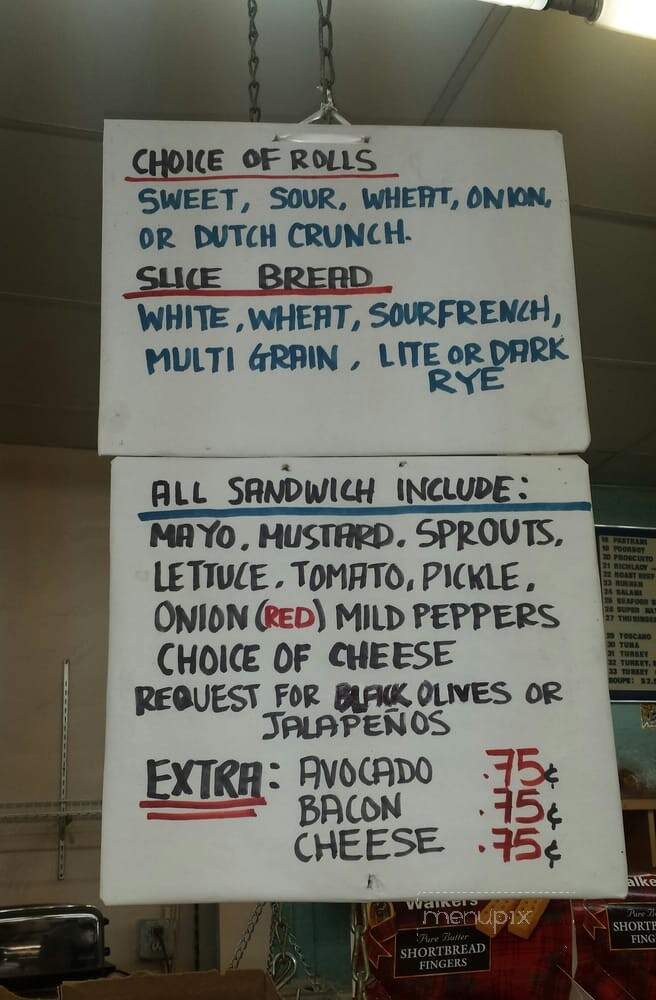 CHOICE OF ROLLS
SWEET, SOUR, WHEAT, ONION,
OR DUTCH CRUNCH.
SLICE BREAD
WHITE, WHEAT, SOURFRENCH,
MULTI GRAIN, LITE OR DARK
RYE
ALL SANDWICH INCLUDE:
MAYO, MUSTARD, SPROUTS,
LETTUCE, TOMATO, PICKLE,
ONION (RED) MILD PEPPERS
CHOICE OF CHEESE
REQUEST FOR BLACK OLIVES OR
JALAPEÑOS
EXTRA: AVOCADO .75¢
BACON .75¢
CHEESE .75¢
18 PASTRAMI
19 POORBOY
20 PROSCIUTO
22 ROAST BEEF
23 REUBEN
24 SALAMI
25 SEAFOOD
26 SUPER
29 TOSCANO
30 TUNA
31 TURKEY
32 TURKEY,
33 TURKEY
Walkers
menupix
Pure Butter
SHORTBREAD
FINGERS
Walke
Pure
SHORTB
FING